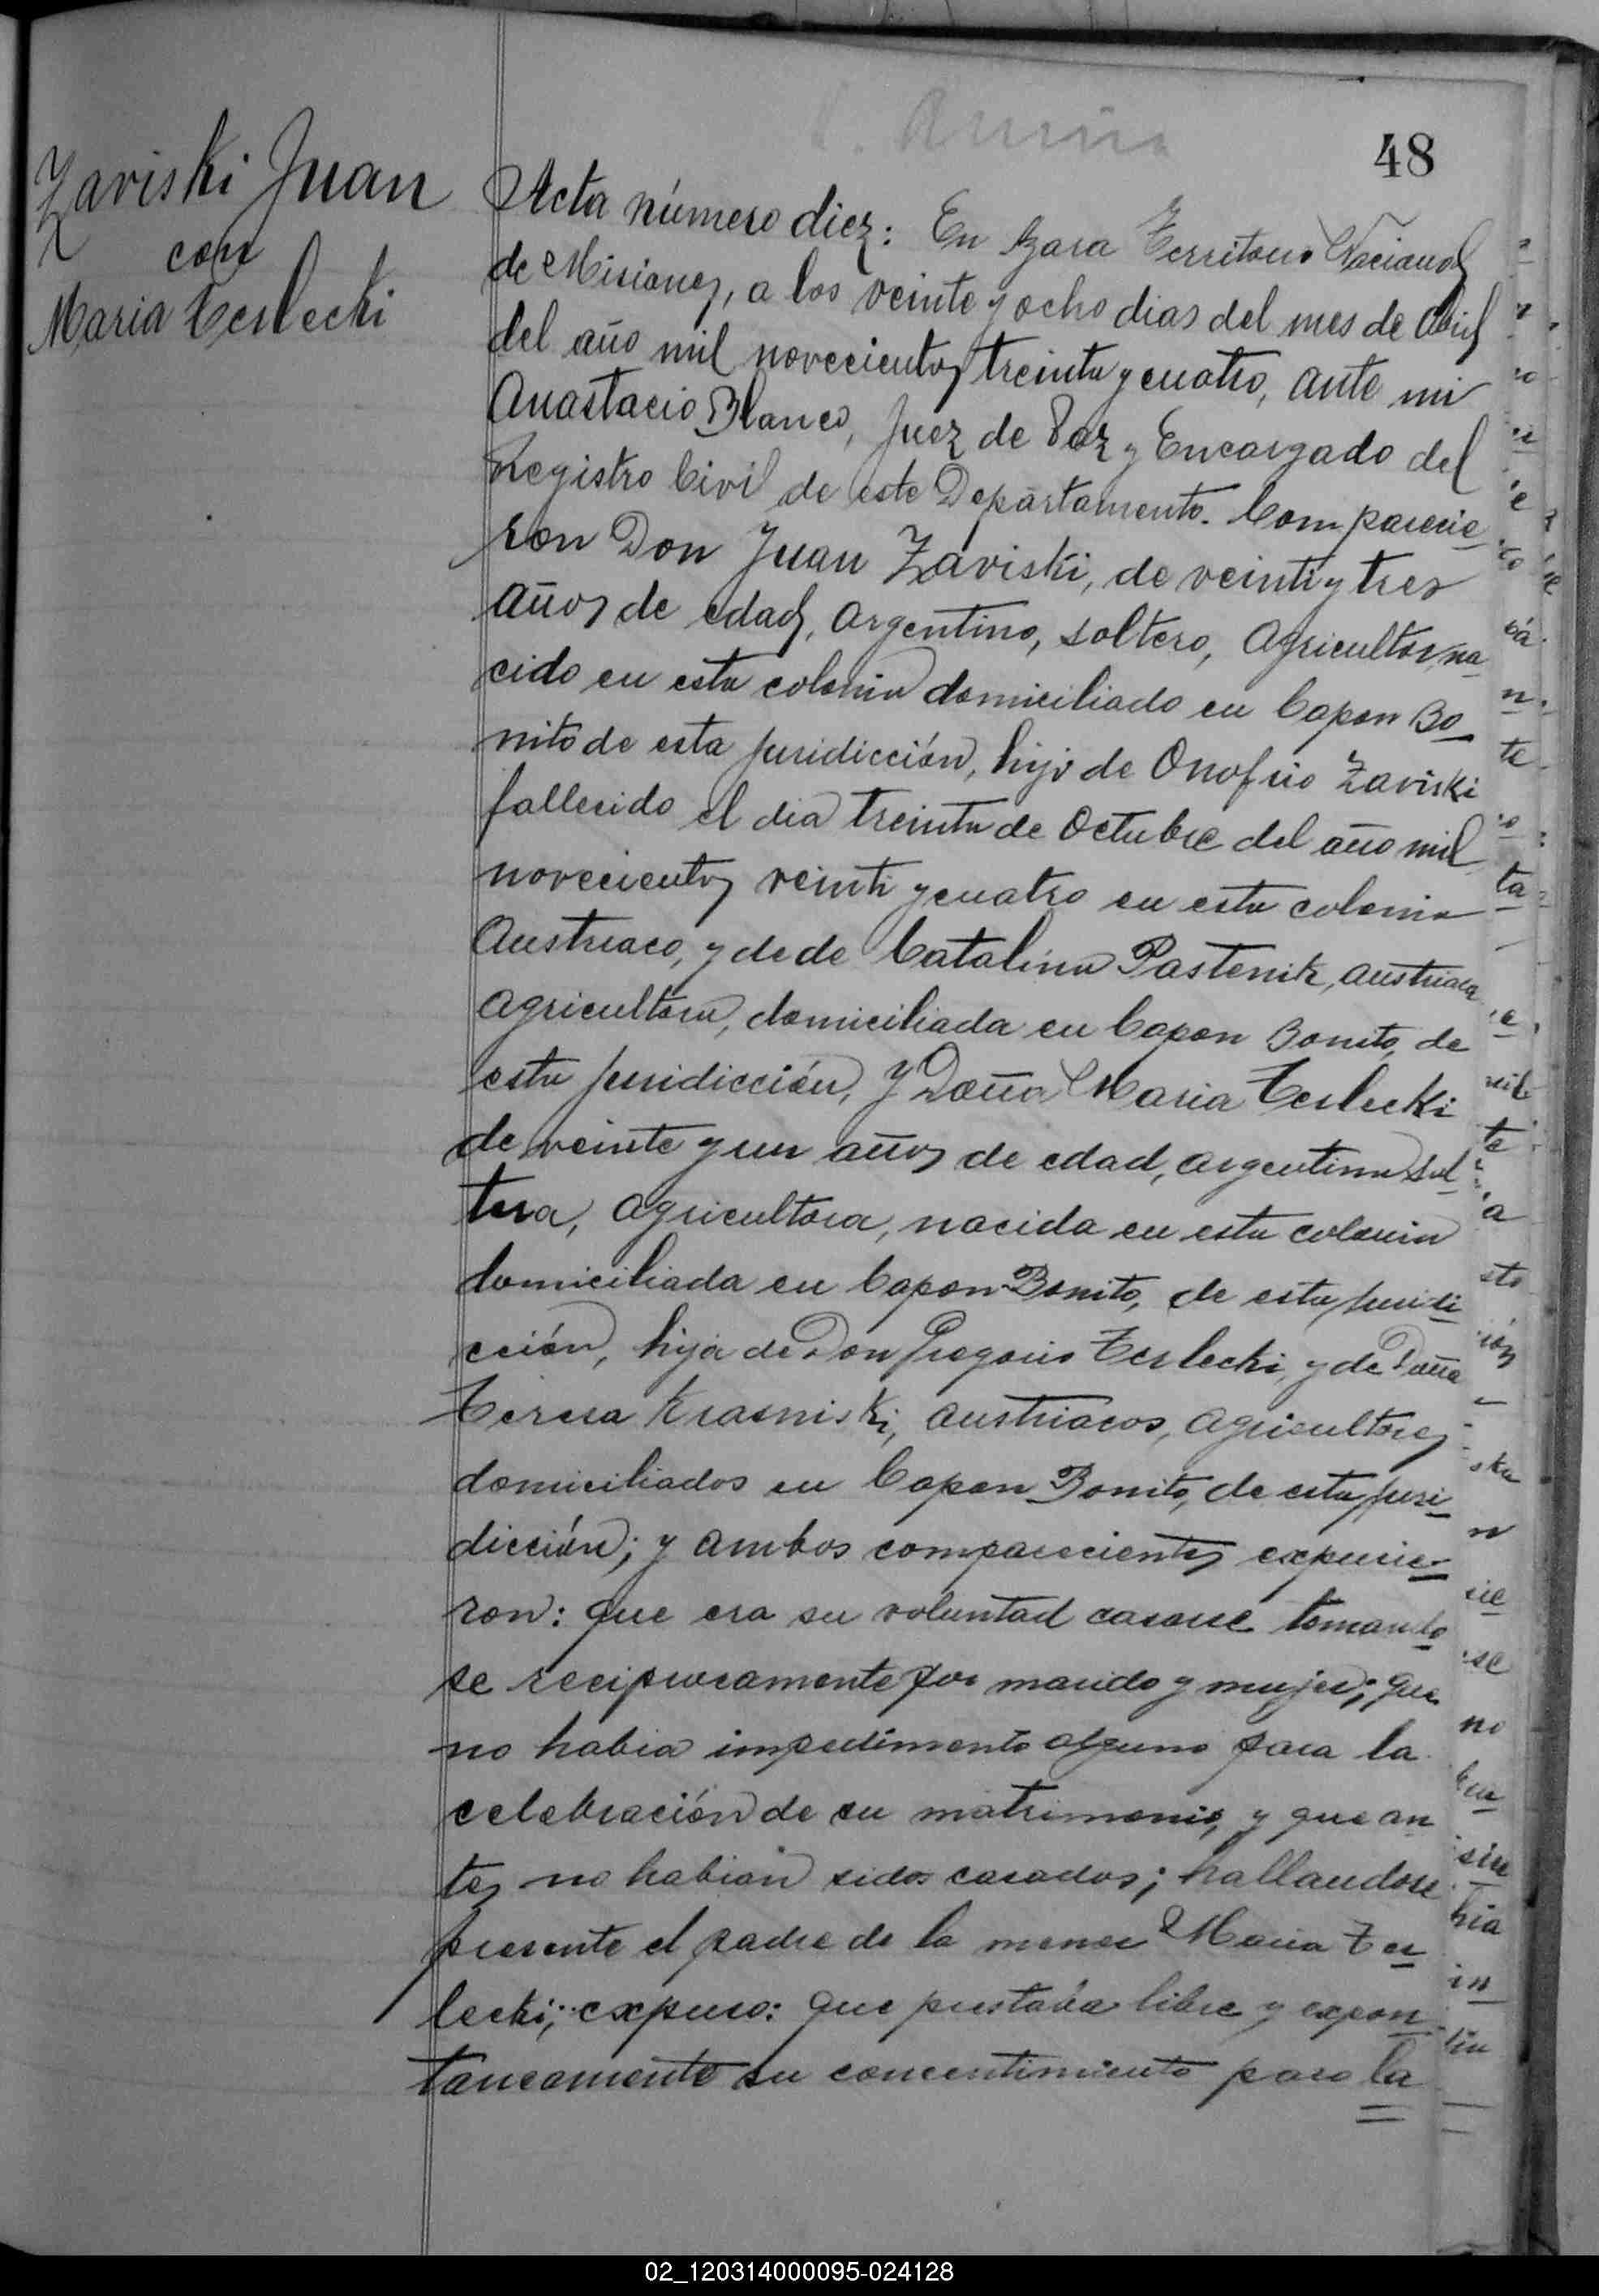 48
Zaviski Juan
con
Maria Terlecki
Acta número diez: En Azara Territorio Nacional
de Misiones, a los veinte y ocho dias del mes de Abril
del año mil novecientos treinta y cuatro, ante mi
Anastacio Blanco, Juez de Paz y Encargado del
Registro Civil de este Departamento. Comparecie
ron Don Juan Zaviski, de veinti y tres
años de edad, argentino, soltero, Agricultor, na
cido en esta colonia domiciliado en Capon Bo
nito de esta juridicción, hijo de Onofrio Zaviski
fallecido el dia treinta de Octubre del año mil
novecientos veinti y cuatro en esta colonia
Austriaco, y de de Catalina Pastenik, austriaca
agricultora, domiciliada en Capon Bonito, de
esta juridicción, y Doña Maria Terlecki
de veinte y un años de edad, argentina sol
tera, agricultora, nacida en esta colonia
domiciliada en Capon Bonito, de esta juridi
cción, hija de Don Gregorio Terlecki, y de Doña
Teresa Krasniski, austriacos, agricultores
domiciliados en Capon Bonito, de esta juri
dicción; y ambos comparecientes expusie
ron: que era su voluntad casarse tomando
se reciprocamente por marido y mujer; que
no habia impedimento alguno para la
celebración de su matrimonio, y que an
tes no habian sidos casados; hallandose
presente el padre de la menor Maria Ter
lecki; expuso: que prestaba libre y expon
taneamente su concentimiento para la
02_120314000095-024128